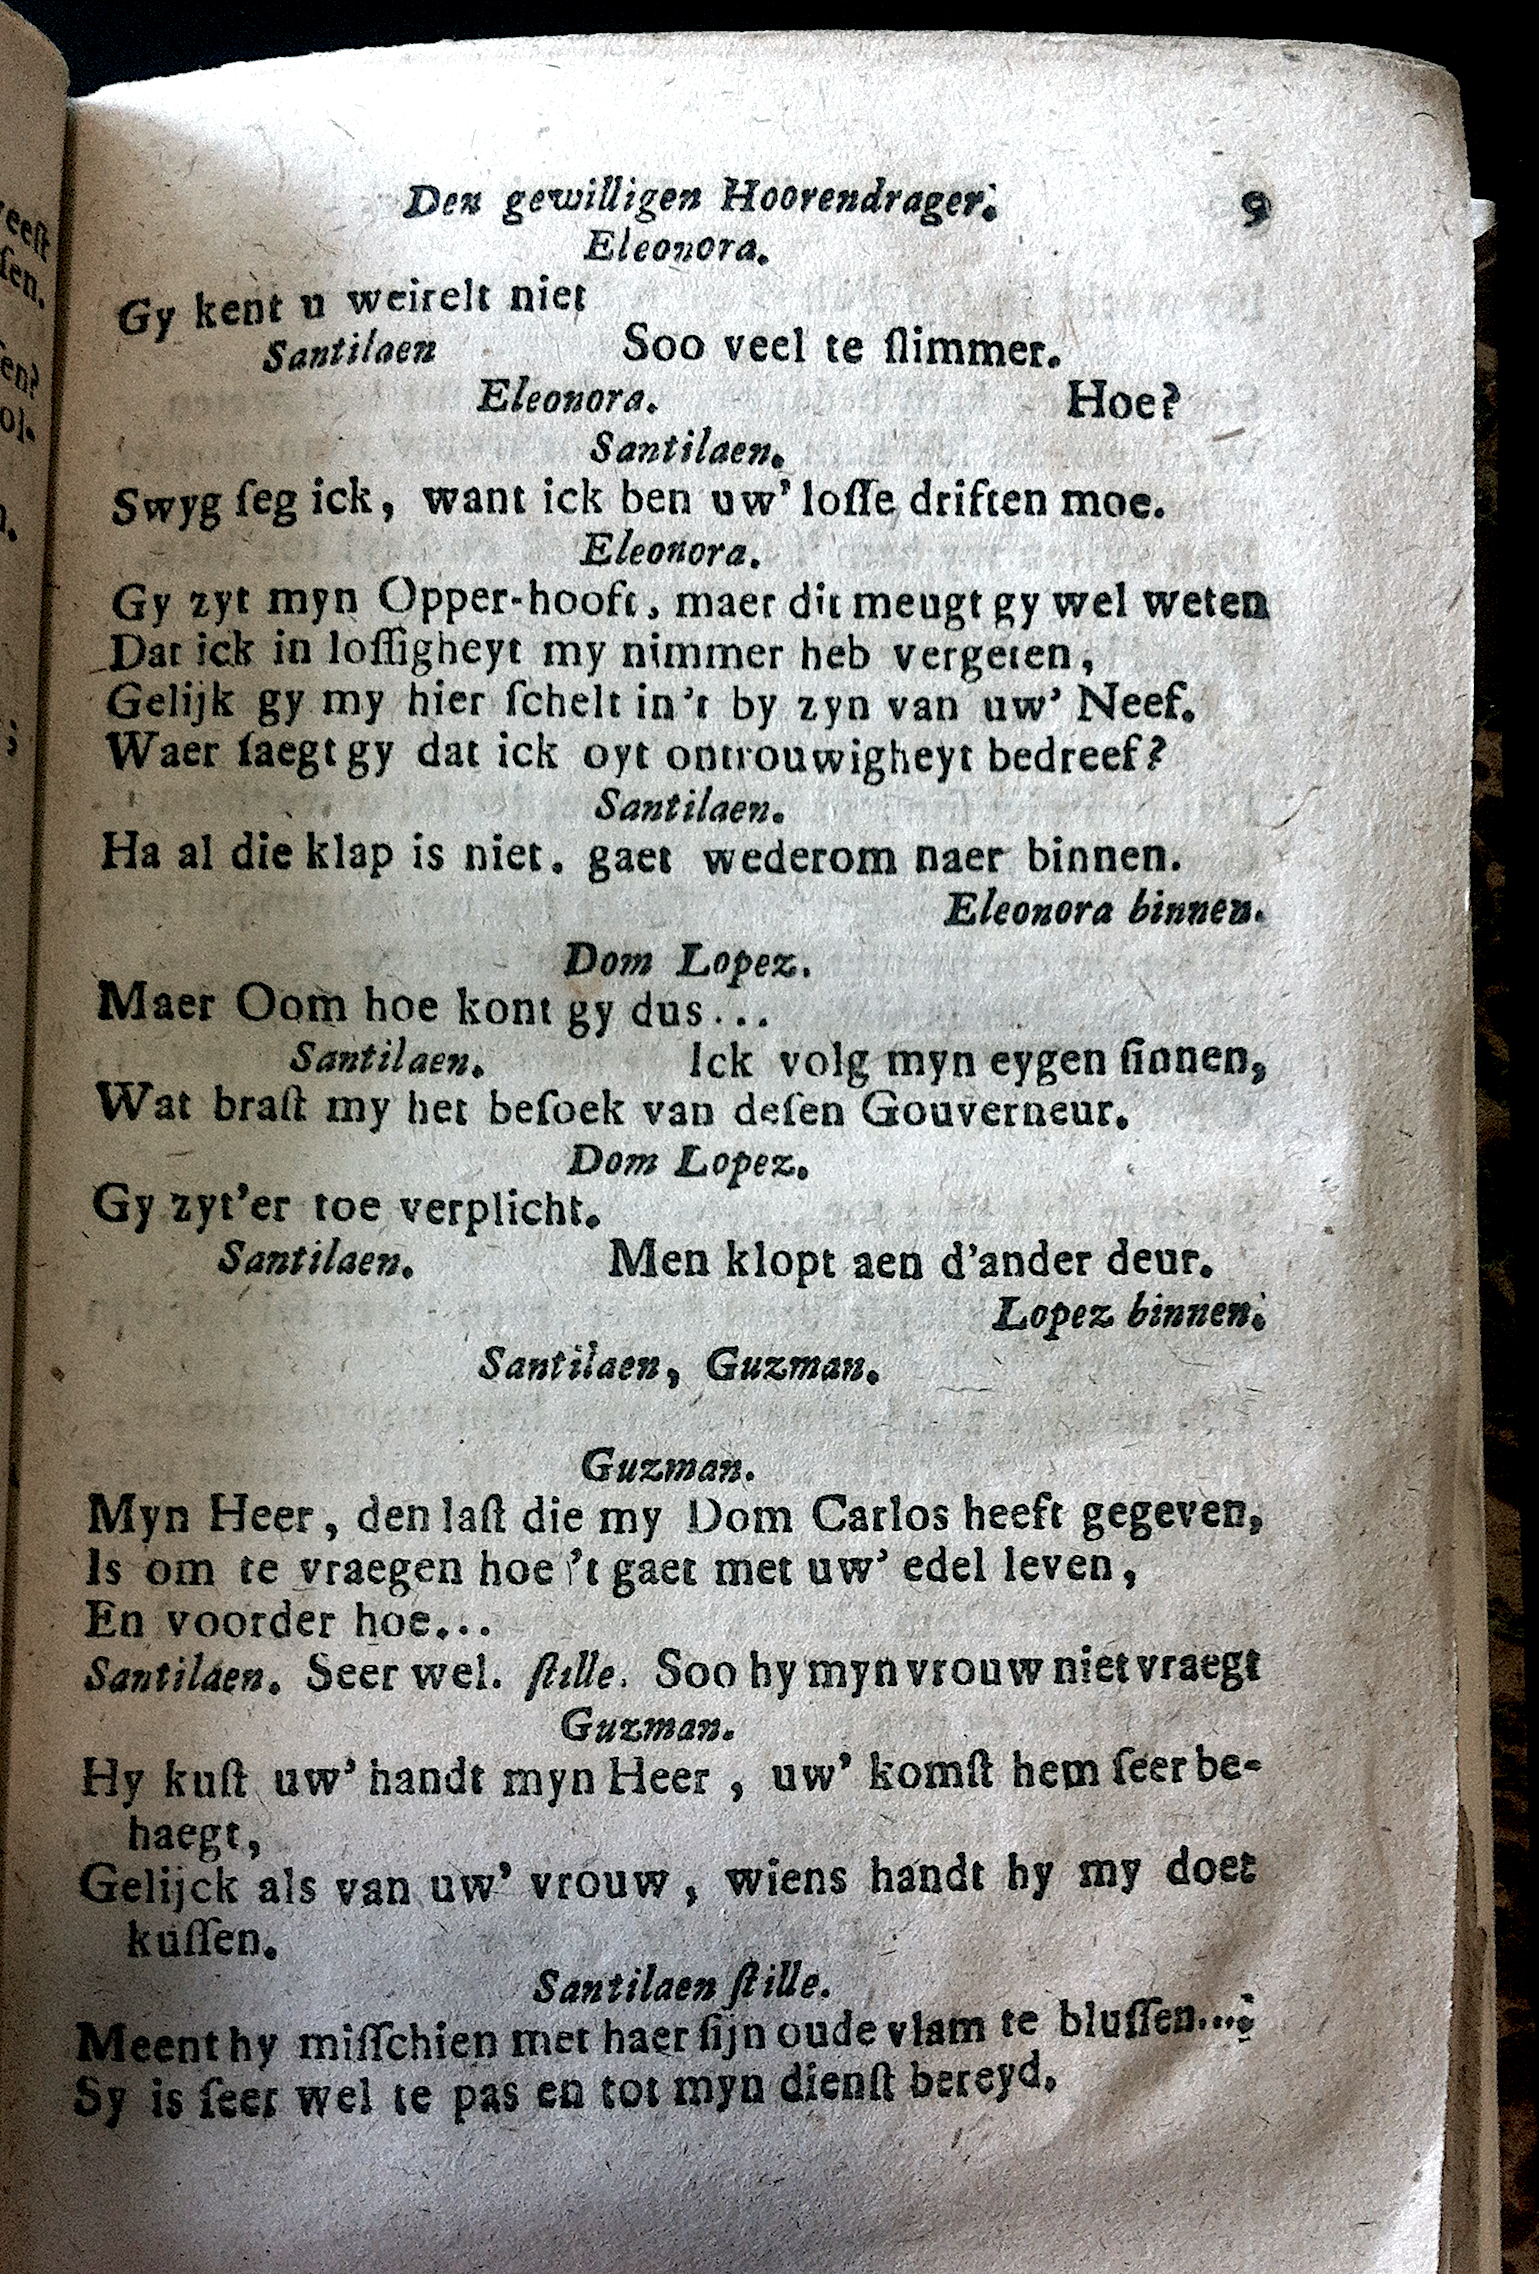 Den gewilligen Hoorendrager. 9
Eleonora.
Gy kent u weirelt niet
Santilaen Soo veel te ſlimmer.
Eleonora. Hoe?
Santilaen.
Swyg ſeg ick, want ick ben uw' loſſe driften moe.
Eleonora.
Gy zyt myn Opper-hooft, maer dit meugt gy wel weten
Dat ick in loſſigheyt my nimmer heb vergeten,
Gelijk gy my hier ſchelt in't by zyn van uw' Neef.
Waer ſaegt gy dat ick oyt ontrouwigheyt bedreef?
Santilaen.
Ha al die klap is niet. gaet wederom naer binnen.
Eleonora binnen.
Dom Lopez.
Maer Oom hoe kont gy dus...
Santilaen. Ick volg myn eygen ſinnen,
Wat braſt my het beſoek van deſen Gouverneur.
Dom Lopez.
Gy zyt'er toe verplicht.
Santilaen. Men klopt aen d'ander deur.
Lopez binnen.
Santilaen, Guzman.
Guzman.
Myn Heer, den laſt die my Dom Carlos heeft gegeven,
Is om te vraegen hoe 't gaet met uw' edel leven,
En voorder hoe...
Santilaen. Seer wel. ſtille. Soo hy myn vrouw niet vraegt
Guzman.
Hy kuſt uw' handt myn Heer, uw' komſt hem ſeer be-
haegt,
Gelijck als van uw' vrouw, wiens handt hy my doet
kuſſen.
Santilaen ſtille.
Meent hy miſſchien met haer ſijn oude vlam te bluſſen....
Sy is ſeer wel te pas en tot myn dienſt bereyd.